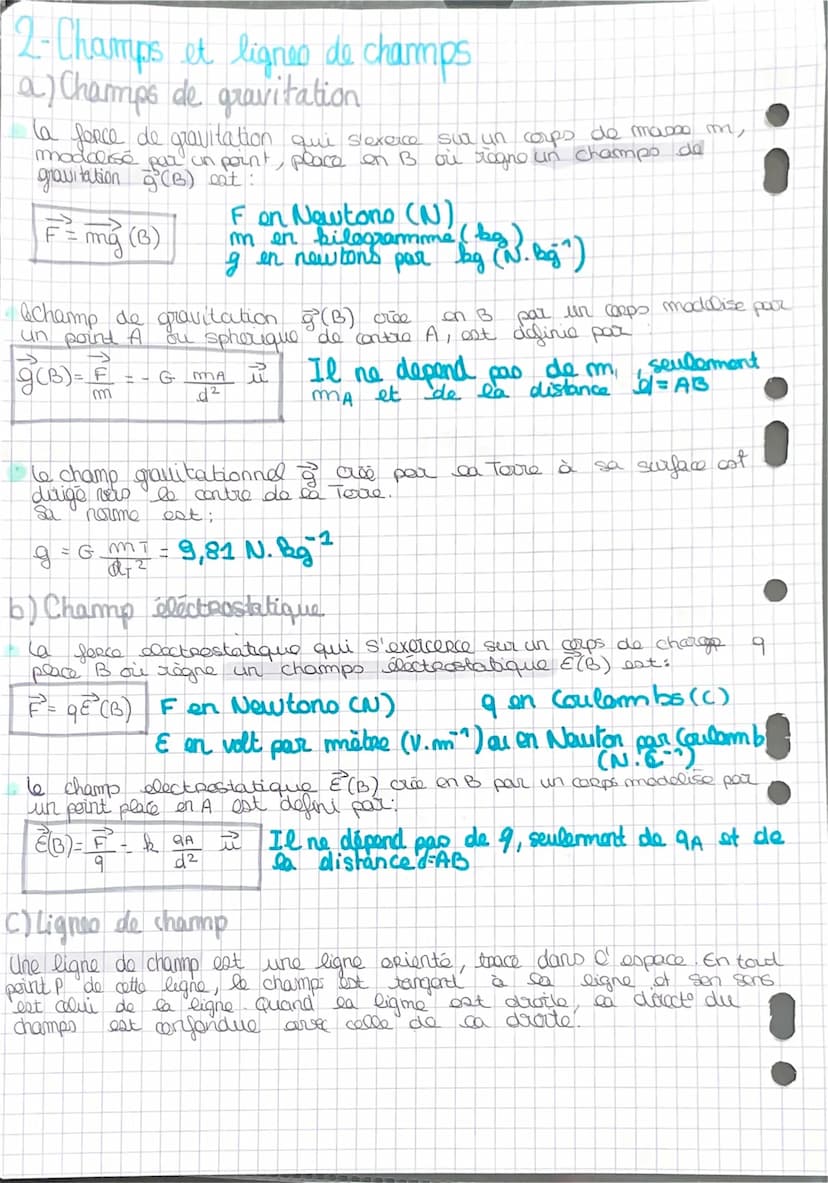 2-Champs et lignes de champs
a) Champs de gravitation
La force de gravitation qui s'exerce sur un corps de masse m,
modelisé par un point, place en B où règne un champs de
gravitation g⃗(B) est :
F⃗ = mg⃗ (B)
F en Newtons (N)
m en kilogramme (kg)
g en newtons par kg (N.kg⁻¹)
champ de gravitation g⃗(B) crée en B par un corps modelise par
un point A ou spherique de centre A, est definie par
g⃗(B) = F⃗/m = - G mA/d² u⃗
Il ne depend pas de m, seulement
mA et de la distance d = AB
Le champ gravitationnel g⃗ créé par la Terre à sa surface est
dirigé vers le centre de la Terre.
Sa norme est :
g = G mT/dT² = 9,81 N.kg⁻¹
b) Champ éléctrostatique
La force electrostatique qui s'exercerce sur un corps de charge q
place B où règne un champs éléctrostatique E⃗(B) est :
F⃗ = qE⃗(B)
F en Newtons (N)
q en Coulombs (C)
E en volt par mètre (V.m⁻¹) ou en Newton par Coulomb
(N.C⁻¹)
Le champ electrostatique E⃗(B) crée en B par un corps modelise par
un point place en A est defini par :
E⃗(B) = F⃗/q = k qA/d² u⃗
Il ne dépend pas de q, seulement de qA et de
la distance d=AB
C) Lignes de champ
Une ligne de champ est une ligne orienté, trace dans l'espace. En tout
point P de cette ligne, le champs est tangent à la ligne et son sens
est celui de la ligne. Quand la ligne est droite, la directe du
champs est confondue avec celle de la droite.